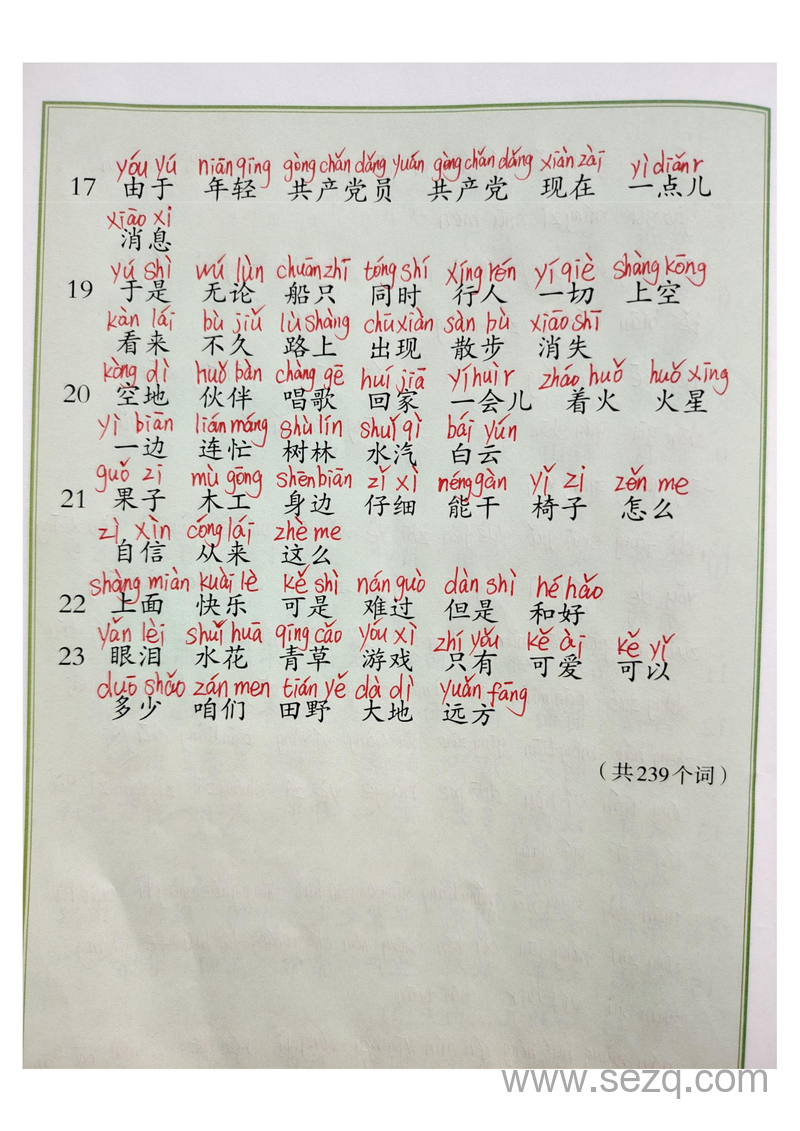 yóu yú niān qīng gòng chǎn dǎng yuán gòng chǎn dǎng xiàn zài yì diǎnr
17 由于 年轻 共产党员 共产党 现在 一点儿
xiāo xi
消息
yú shì wú lùn chuān zhī tóng shí xíng rén yí qiè shàng kōng
19 于是 无论 船只 同时 行人 一切 上空
kàn lái bù jiǔ lù shàng chū xiàn sàn bù xiāo shī
看来 不久 路上 出现 散步 消失
kòng dì huǒ bàn chàng gē huí jiā yí huìr zháo huǒ huǒ xīng
20 空地 伙伴 唱歌 回家 一会儿 着火 火星
yì biān lián máng shù lín shuǐ qì bái yún
一边 连忙 树林 水汽 白云
guǒ zi mù gōng shēn biān zǐ xì néng gàn yǐ zi zěn me
21 果子 木工 身边 仔细 能干 椅子 怎么
zì xìn cóng lái zhè me
自信 从来 这么
shàng miàn kuài lè kě shì nán guò dàn shì hé hǎo
22 上面 快乐 可是 难过 但是 和好
yǎn lèi shuǐ huā qīng cǎo yóu xì zhí yǒu kě ài kě yǐ
23 眼泪 水花 青草 游戏 只有 可爱 可以
duō shǎo zán men tián yě dà dì yuǎn fāng
多少 咱们 田野 大地 远方
(共239个词)
www.sezq.com